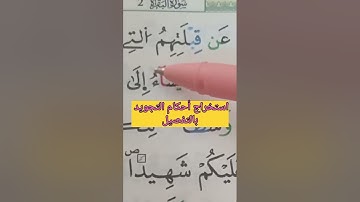 سورة البقرة 2
عَن قِبْلَتِهِمُ الَّتِي
إِلَىٰ
استخراج أحكام التجويد
بالتفصيل
عَلَيْكُمْ شَهِيدًا